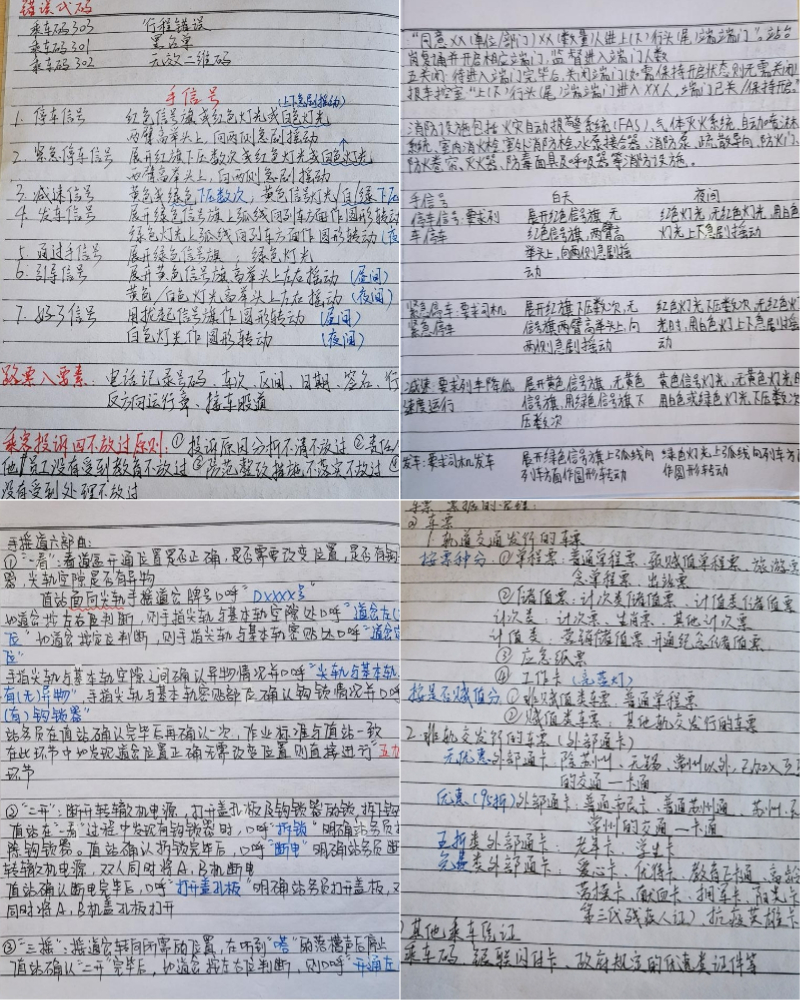 错误代码
乘车码303 行程错误
乘车码301 黑名单
乘车码302 无效二维码
手信号
(上下急剧摇动)
1. 停车信号 红色信号旗或红色灯光或白色灯光
两臂高举头上,向两侧急剧摇动
2. 紧急停车信号 展开红旗下压数次或红色灯光或白色灯光
两臂高举头上,向两侧急剧摇动
3. 减速信号 黄色或绿色下压数次,黄色信号灯光/白/绿下压
4. 发车信号 展开绿色信号旗上弧线向列车方面作圆形转动
绿色灯光上弧线向列车方面作圆形转动(夜
5. 通过手信号 展开绿色信号旗,绿色灯光
6. 引导信号 展开黄色信号旗高举头上左右摇动(昼间)
黄色/白色灯光高举头上左右摇动(夜间)
7. 好了信号 用拢起信号旗作圆形转动(昼间)
白色灯光作圆形转动(夜间)
路票八要素:电话记录号码、车次、区间、日期、签名、行
反方向运行章、接车股道
乘客投诉四不放过原则:①投诉原因分析不清不放过②责任/
他员工没有受到教育不放过③防范整改措施不落实不放过④
没有受到处理不放过
“同意XX(单位/部门)XX(数量)人进上(下)行头(尾)端端门”,站台
岗复诵并开启相应端门,监督进入端门人数
五关闭:待进入端门完毕后,关闭端门(如需保持开启状态则无需关闭)
报车控室“上(下)行头(尾)端端门进入XX人,端门已关/保持开启。”
消防设施包括火灾自动报警系统(FAS)、气体灭火系统、自动喷淋
系统、室内消火栓、室外消防栓、水泵接合器、消防泵、疏散导向、防火门、
防火卷帘、灭火器、防毒面具及呼吸器等消防设施。
手信号 白天 夜间
停车信号:要求列 展开红色信号旗,无 红色灯光,无红色灯光,用白
车停车 红色信号旗,两臂高 灯光上下急剧摇动
举头上,向两侧急剧摇
动
紧急停车:要求司机 展开红旗下压数次,无 红色灯光下压数次,无红色
紧急停车 信号旗两臂高举头上,向 光时,用白色灯上下急剧摇
两侧急剧摇动 动
减速:要求列车降低 展开黄色信号旗,无黄色 黄色信号灯光,无黄色灯光
速度运行 信号旗,用绿色信号旗下 用白色或绿色灯光下压数次
压数次
发车:要求司机发车 展开绿色信号旗上弧线向 绿色灯光上弧线向列车方
列车方面作圆形转动 作圆形转动
手摇道六部曲:
①“一看”:看道岔开通位置是否正确,是否需要改变位置,是否有钩
器,尖轨空隙是否有异物
值站面向尖轨手指道岔牌号口呼“DXXXX号”
如道岔按左右位判断,则手指尖轨与基本轨空隙处口呼“道岔左(
位”如道岔按定位判断,则手指尖轨与基本轨密贴处口呼“道岔
位”
手指尖轨与基本轨空隙之间确认异物情况并口呼“尖轨与基本轨
有(无)异物”手指尖轨与基本轨密贴部位确认钩锁情况并口呼
(有)钩锁器”
站务员在值站确认完毕后再确认一次,作业标准与值站一致
在此环节中如发现道岔位置正确无需改变位置则直接进行“五
环节
②“二开”:断开转辙机电源,打开盖孔板及钩锁器的锁,拆下钩
值站在“一看”过程中发现有钩锁器时,口呼“拆锁”明确站务员
除钩锁器。值站确认拆锁完毕后,口呼“断电”明确站务员断
转辙机电源,双人同时将A、B机断电
值站确认断电完毕后,口呼“打开盖孔板”明确站务员打开盖板,
同时将A、B机盖孔板打开
③“三摇”:摇道岔转向所需的位置,在听到“嗒”的落槽声后停止
值站确认“二开”完毕后,如道岔按左右位判断,则口呼“开通左
②车票
1. 轨道交通发行的车票
按票种分 ①单程票:普通单程票、预赋值单程票、旅游
念单程票、出站票
②储值票:计次类储值票、计值类储值票
计次类:计次票、生肖票、其他计次票
计值类:营销储值票、开通纪念储值票
③应急纸票
④工作卡(亮蓝灯)
按是否赋值分 ①非赋值类车票:普通单程票
②赋值类车票:其他轨交发行的车票
2. 非轨交发行的车票(外部卡)
无优惠外部通卡:除苏州、无锡、常州以外
的交通一卡通
优惠(95折)外部通卡:普通市民卡、普通苏州通、苏州、无
常州的交通一卡通
五折类外部通卡:老年卡、学生卡
免费类外部通卡:爱心卡、优待卡、教育E卡通、高龄
劳模卡、献血卡、拥军卡、阳光卡
第三代残疾人证)抗疫英雄卡
)其他乘车凭证
乘车码、银联闪付卡、政府规定的优惠类证件等